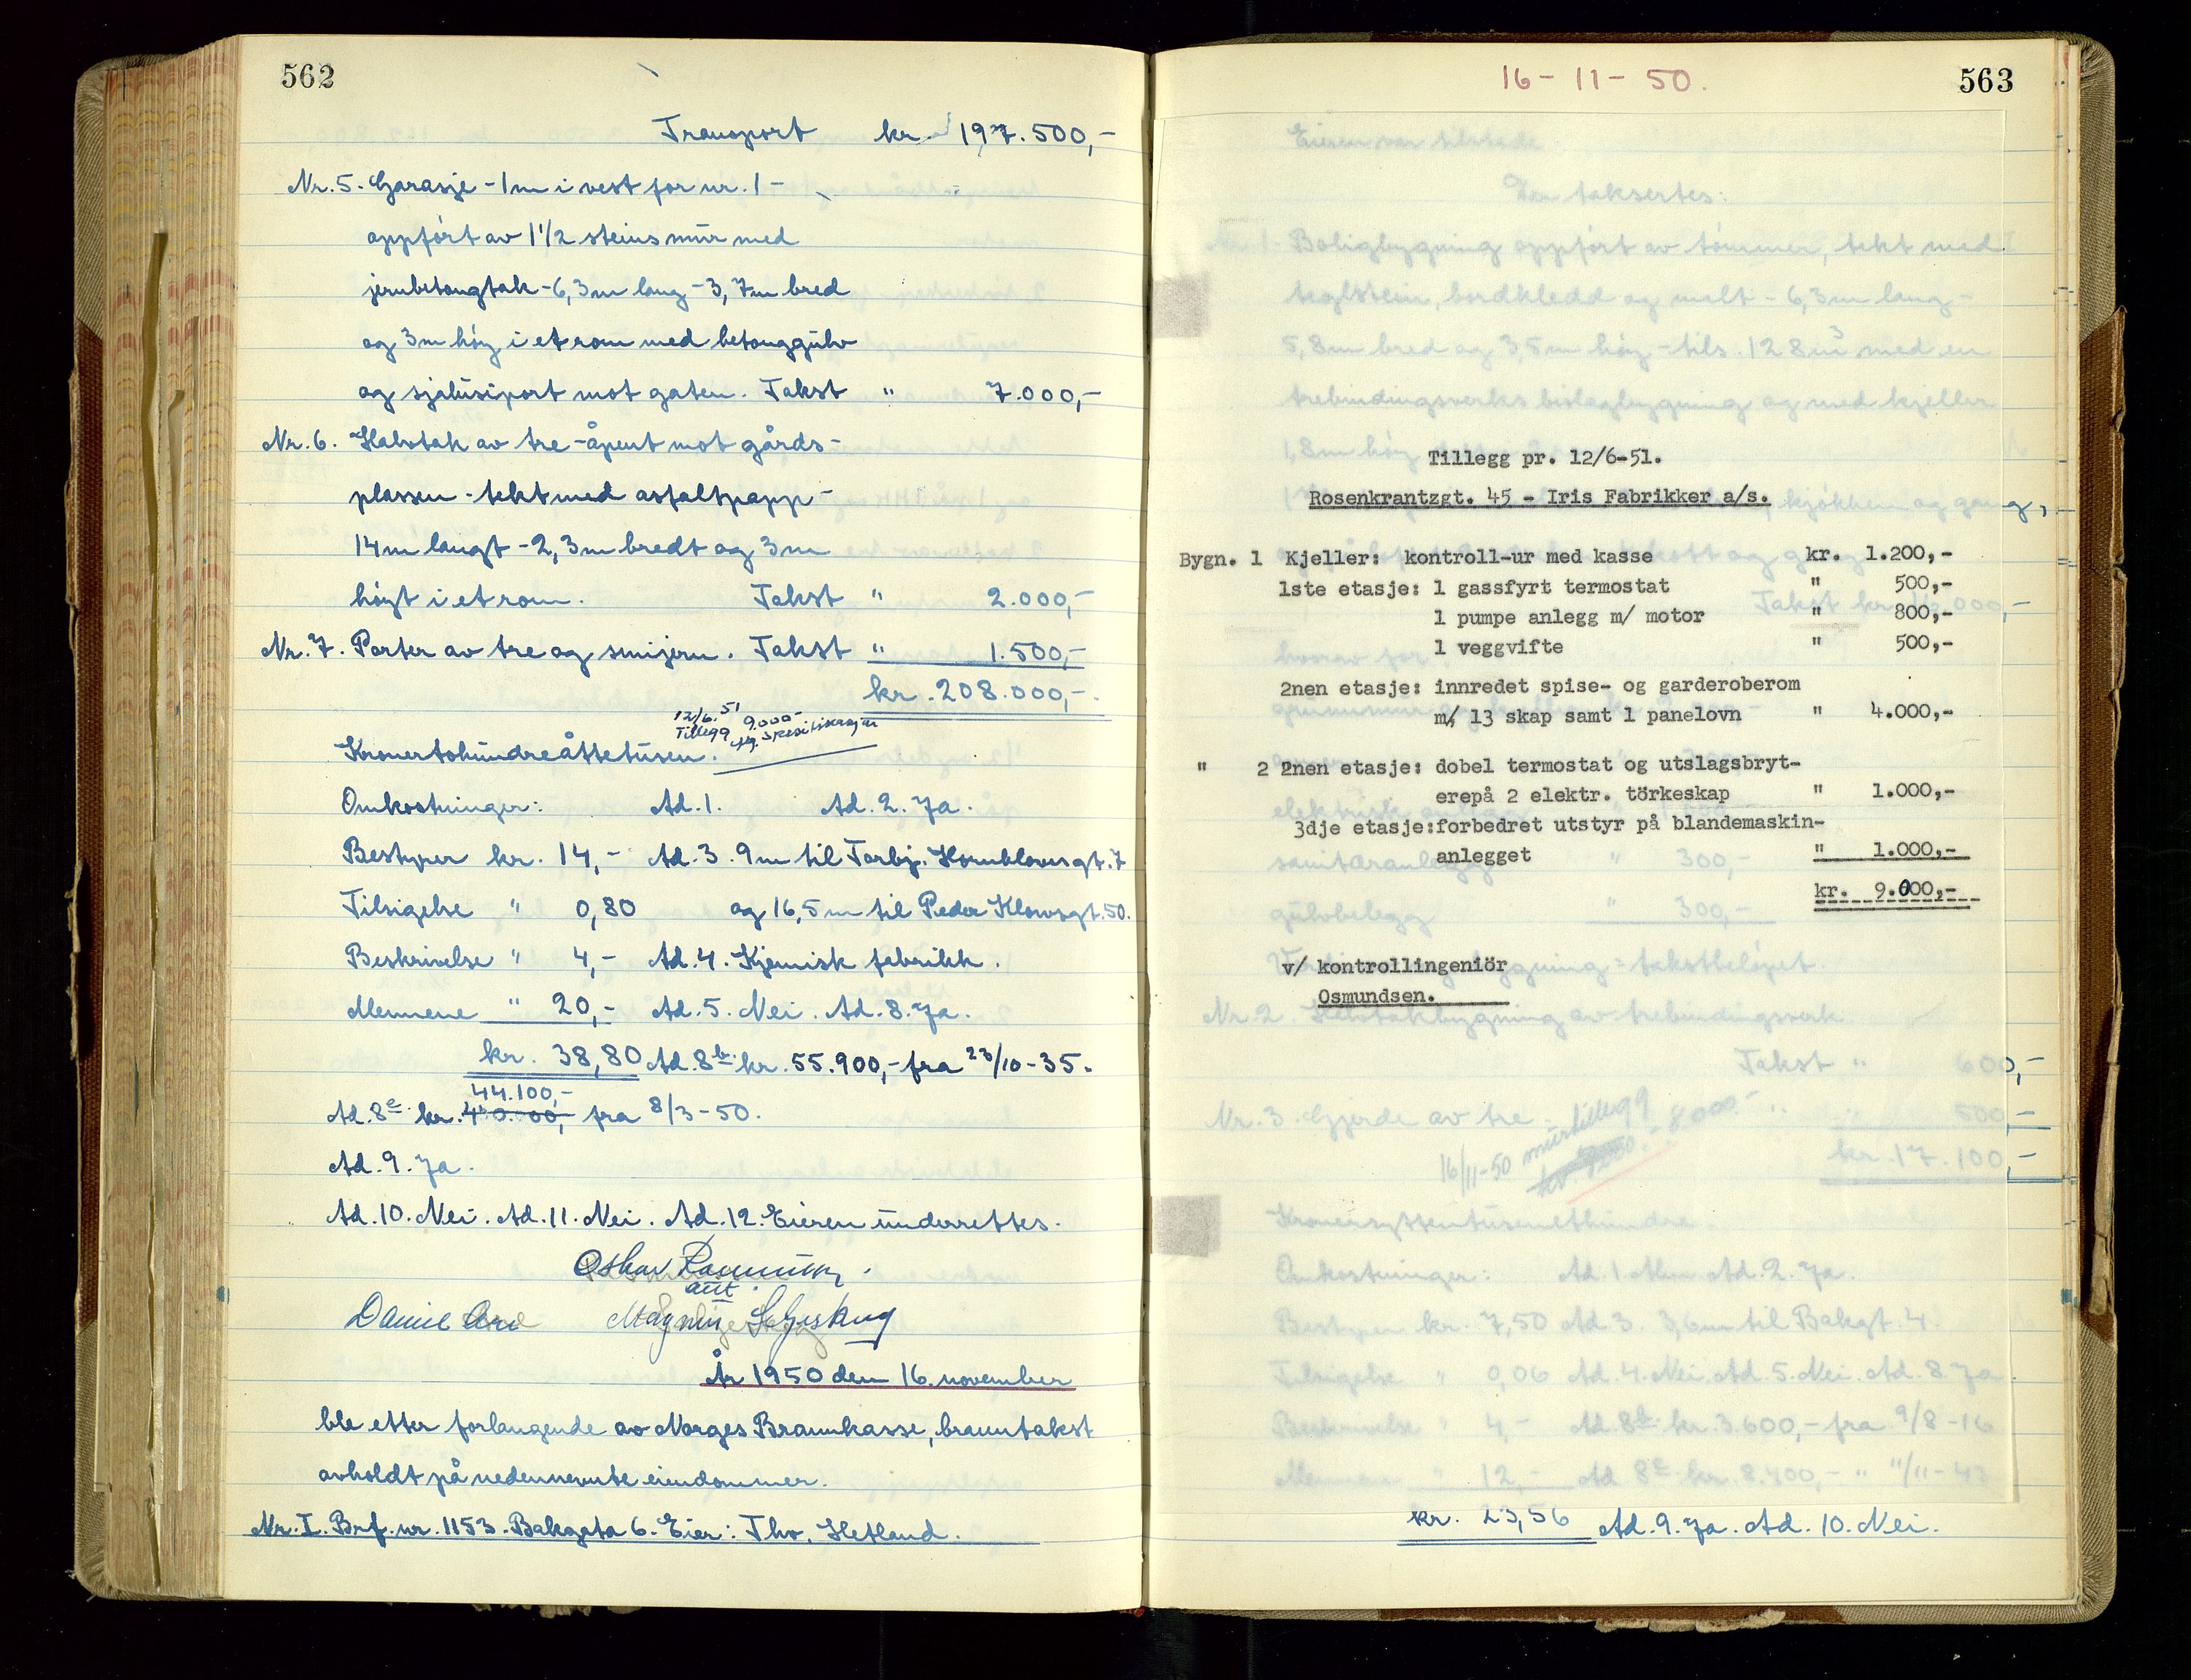 562
Transport kr. 197.500,-
Nr. 5. Garasje - 1m i vest for nr. 1 -
oppført av 1 1/2 steins mur med
jernbetongtak - 6,3m lang - 3,7m bred
og 3m høy i et rom med betonggulv
og sjalusiport mot gaten. Takst " 7.000,-
Nr. 6. Halvtak av tre - åpent mot gårds-
plassen - tekt med asfaltpapp -
14m langt - 2,3m bredt og 3m
høyt i et rom. Takst " 2.000,-
Nr. 7. Porter av tre og smijern. Takst " 1.500,-
kr. 208.000,-
12/6.51 9.000-
Tillegg flg. spesifikasjon
Kronertohundreåttetusen.
Omkostninger: Ad. 1. Ad. 2. Ja.
Bestyrer kr. 14,- Ad. 3. 9m til Torbj. Hornklovsgt. 7
Tilsigelse " 0,80 og 16,5m til Peder Klowsgt. 50.
Beskrivelse " 4,- Ad. 4. Kjemisk fabrikk.
Mennene " 20,- Ad. 5. Nei. Ad. 8. Ja.
kr. 38,80 Ad. 8b. kr. 55.900,- fra 23/10-35.
44.100,-
Ad. 8c. kr. fra 8/3-50.
Ad. 9. Ja.
Ad. 10. Nei. Ad. 11. Nei. Ad. 12. Eieren underrettes.
Oskar
aut.
Daniel Magnus
År 1950 den 16. november
ble etter forlangende av Norges Brannkasse, branntakst
avholdt på nedennevnte eiendommer.
Nr. I. Brf. nr. 1153. Bakgata 6. Eier: Thv. Hetland.
16-11-50.
563
Eieren var tilstede
Der taksertes:
Nr. 1. Boligbygning oppført av tømmer, tekt med
teglstein, bordkledd og malt - 6,3m lang -
5,8m bred og 3,5m høy - tils. 128m3 med en
trebindingsverks bislagbygning og med kjeller
1,8m høy
kjøkken og gang,
Takst kr. 000,-
Tillegg pr. 12/6-51.
Rosenkrantzgt. 45 - Iris Fabrikker a/s.
Bygn. 1 Kjeller: kontroll-ur med kasse kr. 1.200,-
1ste etasje: 1 gassfyrt termostat " 500,-
1 pumpe anlegg m/ motor " 800,-
1 veggvifte " 500,-
2nen etasje: innredet spise- og garderoberom
m/ 13 skap samt 1 panelovn " 4.000,-
" 2 2nen etasje: dobel termostat og utslagsbryt-
erepå 2 elektr. törkeskap " 1.000,-
3dje etasje:forbedret utstyr på blandemaskin-
anlegget " 1.000,-
kr. 9.000,-
v/ kontrollingeniör
Osmundsen.
sanitæranlegg " 300,-
gulvbelegg " 300,-
bygning = takstbeløpet.
Nr. 2. Halvtakbygning av trebindingsverk
Takst " 600,-
Nr. 3. Gjerde av tre. " 500,-
16/11-50 murtillegg 8000.-
kr. 17.100,-
Kronersyttentusenetthundre
Omkostninger: Ad. 1 Ad. 2. Ja.
Bestyrer kr. 7,50 Ad. 3. 3,6m til Bakgt. 4.
Tilsigelse " 0,06 Ad. 4. Nei. Ad. 5. Nei. Ad. 8. Ja.
Beskrivelse " 4,- Ad. 8b. kr. 3.600,- fra 9/8-16
Mennene " 12,- Ad 8c. kr. 8.400,- " 11/11-43
kr. 23,56 Ad. 9. Ja. Ad. 10. Nei.